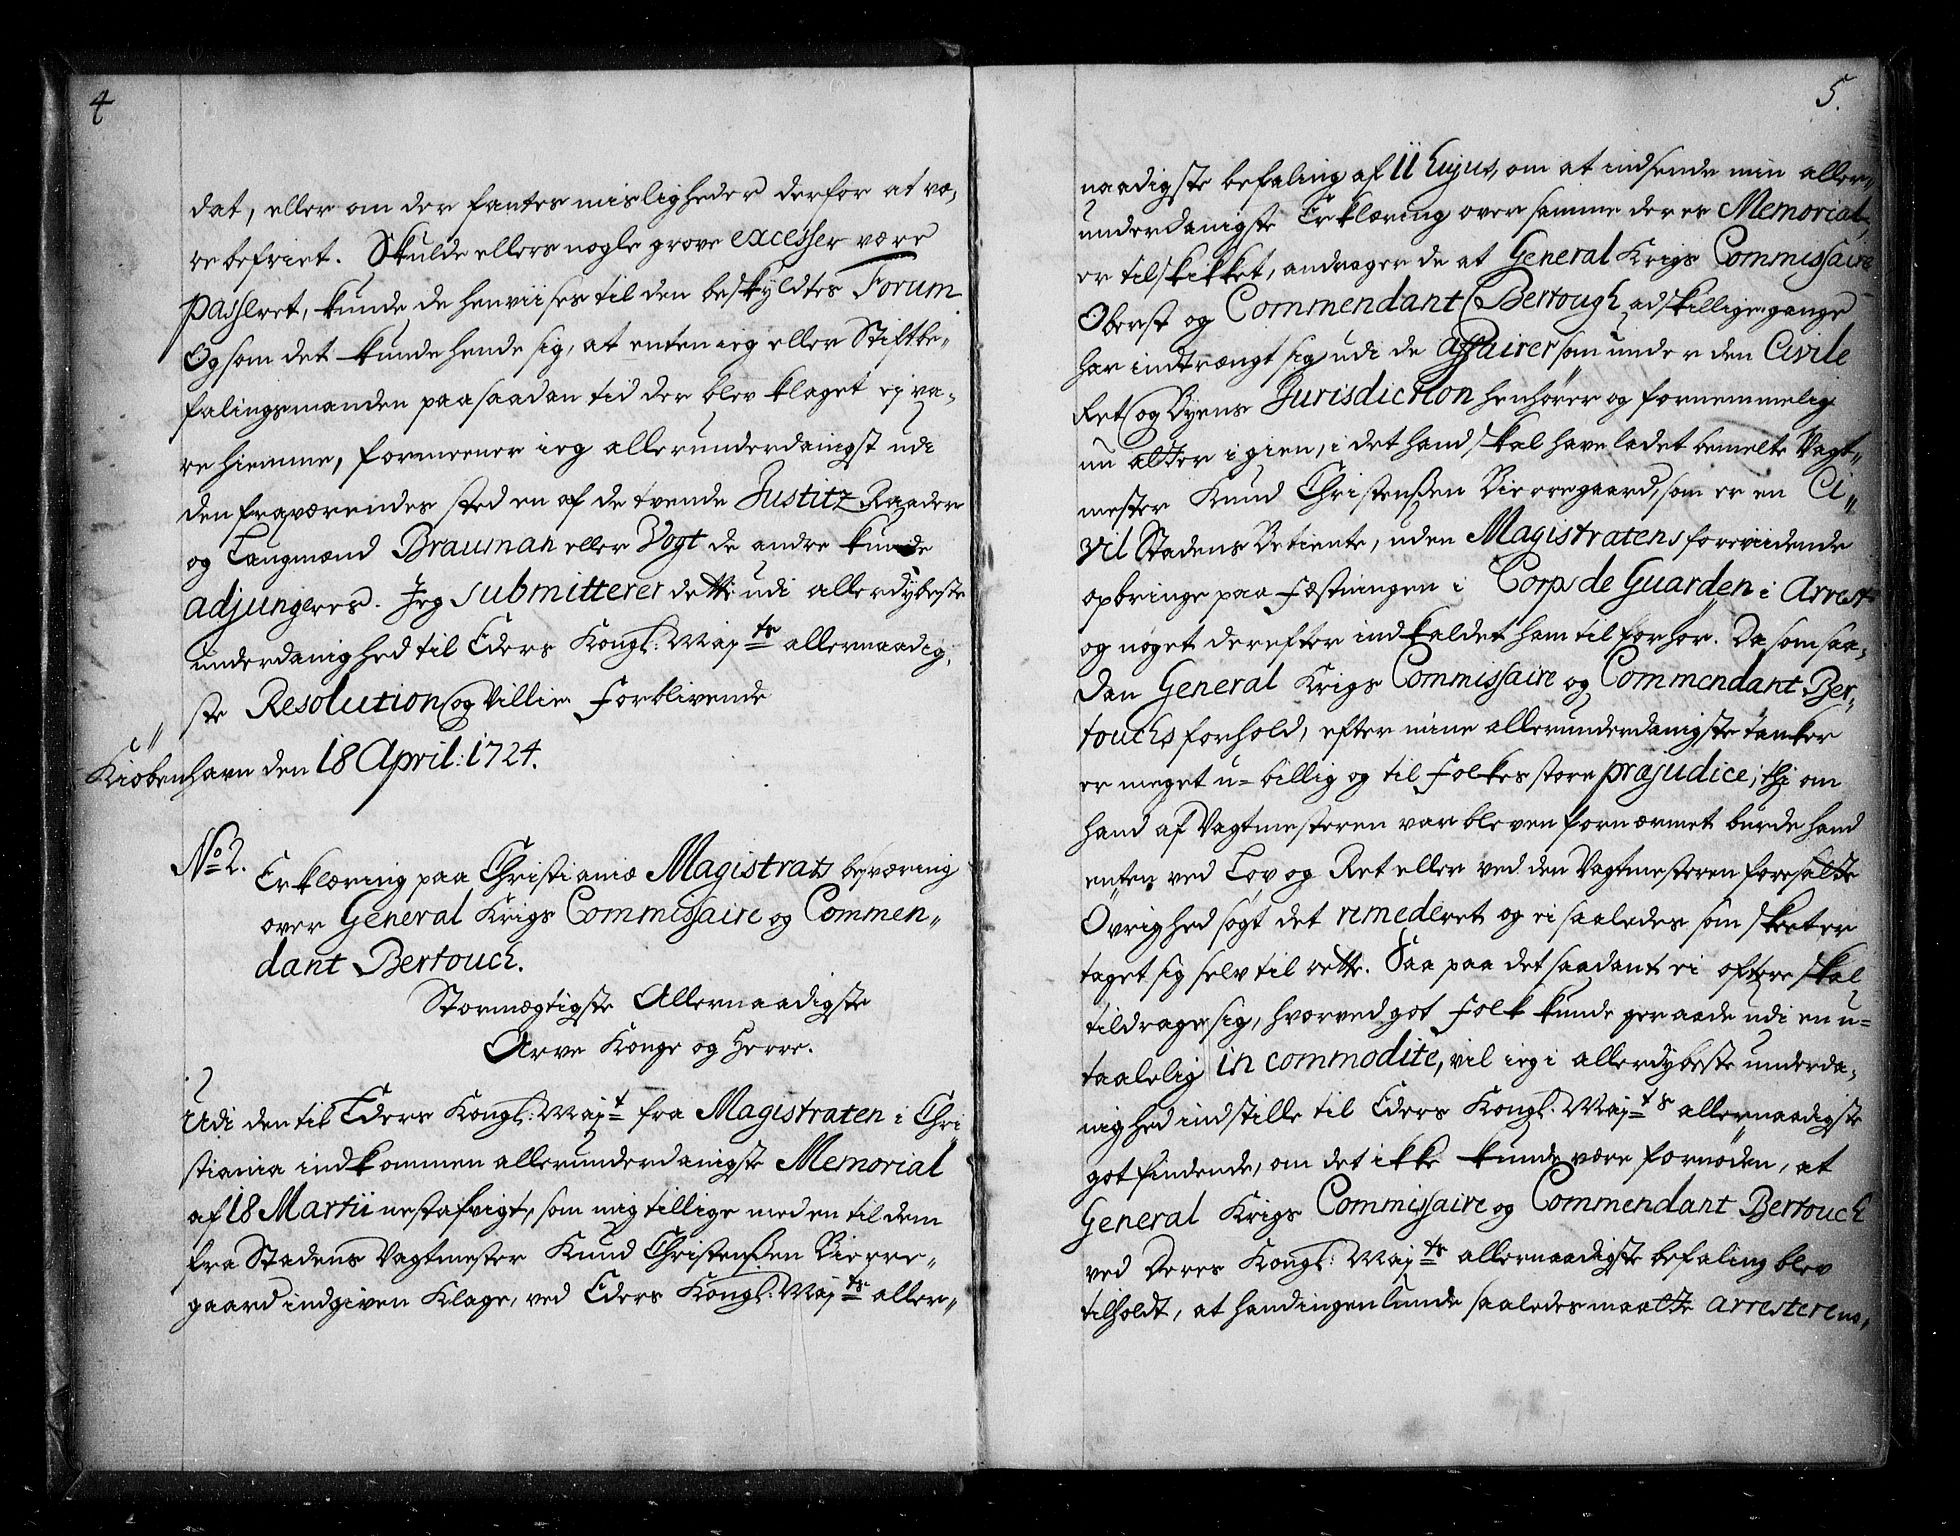 4
dat, eller om der fantes misligheder derfor at væ,
re befriet. Skulde ellers nogle grove excesser være
passeret, kunde de henviises til den beskyldtes Forum.
Og som det kunde hende sig, at enten ieg eller Stiftbe„
falingsmanden paa saadan tid der blev klaget ej va„
re hiemme, formeener ieg allerunderdanigst udi
den fraværendes sted en af de tvende Justitz Raader
og Laugmænd Brauman eller Vogt de andre kunde
adjungeres. Jeg submitterer dette udi allerdybeste
underdanighed til Eders Kongl: Maj:ts allernaadig,
ste Resolution og Villie. Forblivende
Kiöbenhavn den 18 April: 1724.
No 2.
Erklæring paa Christianiæ Magistrats besværing
over General Krigs Commissaire og Commen„
dant Bertouch.
Stormægtigste Allernaadigste
Arve Konge og Herre.
Udi den til Eders Kongl: Maj:t fra Magistraten i Chri
stiania indkommen allerunderdanigste Memorial
af 18 Martii nestafvigt, som mig tillige med en til dem
fra Stadens Vagtmester Knud Christensßen Bierre„
gaard indgiven Klage, ved Eders Kongl: Maj:ts aller„
5.
naadigste befaling af 11 hujus, om at indsende min aller„
underdanigste Erklæring over samme deres Memorial,
er tilskikket, andrager de at General Krigs Commissaire
Oberst og Commendant Bertough adskillige gange
har indtrængt sig udi de Affairer som under den Civile
Ret og Byens Jurisdiction henhörer og fornemmelig
nu atter igien, i det hand skal have ladet bemelte Vagt„
mester Knud Christensßen Bierregaard, som er en Ci„
vil Stadens Betiente, uden Magistratens foreviidende
opbringe paa Fæstningen i Corps de Guarden i Arrest
og noget derefter indkaldet ham til forhör. Da som saa„
dan General Krigs Commissaire og Commendant Ber„
touchs forhold, efter mine allerunderdanigste tanker
er meget u=billig og til Folkes store præjudice; thi om
hand af Vagtmesteren var bleven fornærmet burde hand
enten ved Lov og Ret eller ved den Vagtmesteren foresatte
Övrighed sögt det remederet og ei saaledes som skeet er
taget sig selv til rette. Saa paa det saadant ei oftere skal
tildrage sig, hvorved got Folk kunde geraade udi en u=
taalelig incommodite, vil ieg i allerdybeste underda„
nighed indstille til Eders Kongl: Maj:ts allernaadigste
gotfindende, om det ikke kunde være fornöden, at
General Krigs Commissaire og Commendant Bertouch
ved Deres Kongl: Maj:ts allernaadigste befaling blev
tilholdt, at hand ingenlunde saaledes maatte arrestere no„